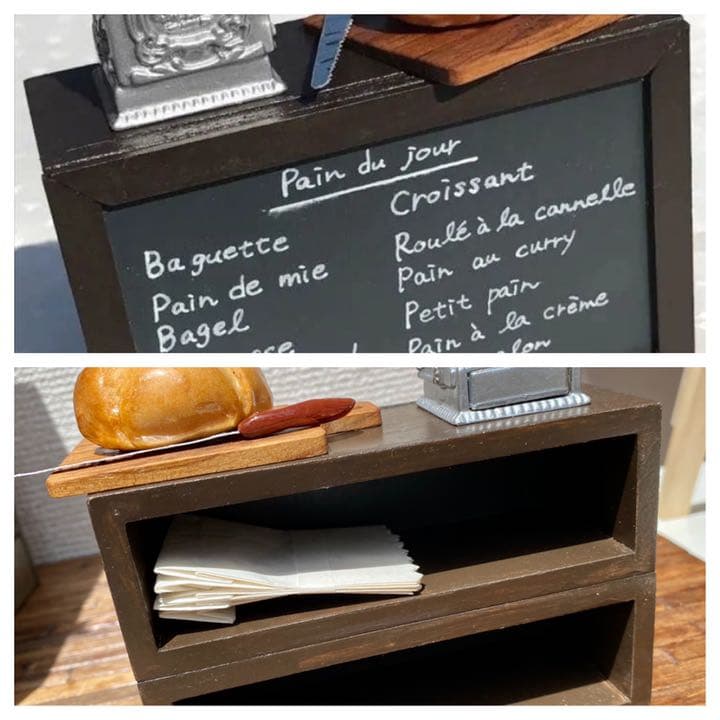 Pain du jour
Baguette
Pain de mie
Bagel
Croissant
Roulé à la cannelle
Pain au curry
Petit pain
Pain à la crème